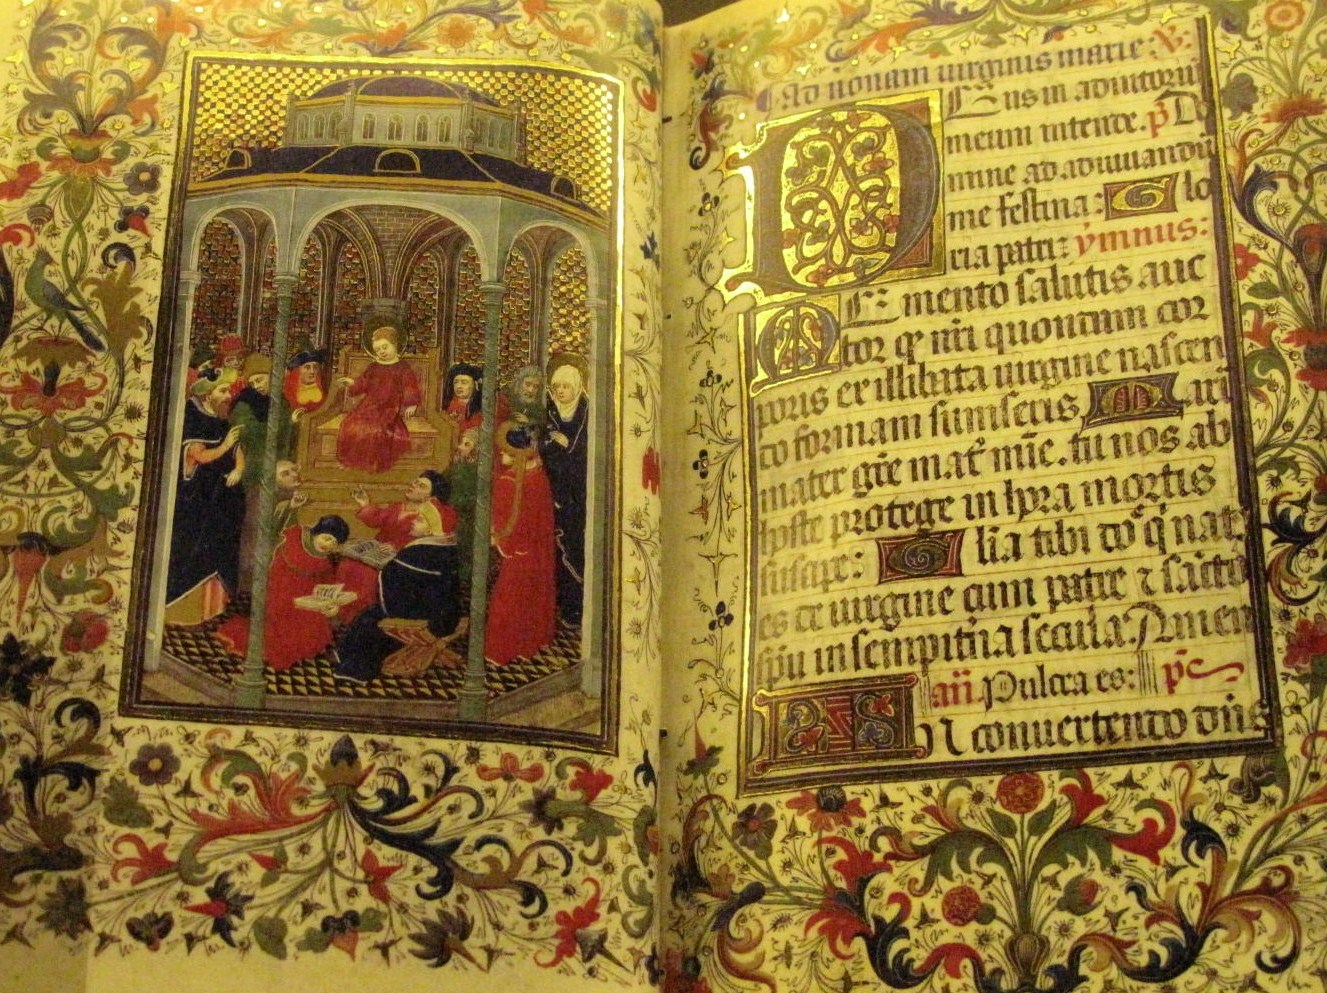 Ad nonam uirginis marie. V.
DEus in adiutoriu
meum intende. p D
mine ad adiuuandu
me festina. Glo
ria patri. ymnus.
Memento salutis auc
tor q nri quondam cor
poris ex illibata uirgine nascen
do formam sumpseris. Maria
mater gracie mater mie. tu nos ab
hoste protege in hora mortis
suscipe. Gloria tibi dne q nat
es de uirgine cum patre et sancto
spiritu in sempiterna secula. Amen
an. Pulcra es. ps
IN Conuertendo dns